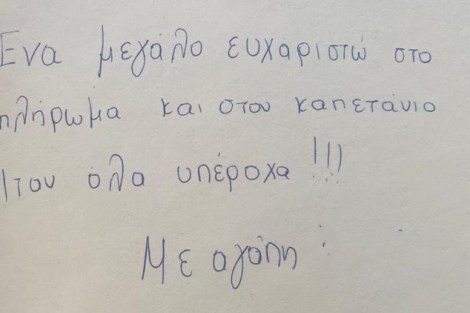 Ένα μεγάλο ευχαριστώ στο
πλήρωμα και στον καπετάνιο
Ήτον όλα υπέροχα !!!
Με αγάπη :